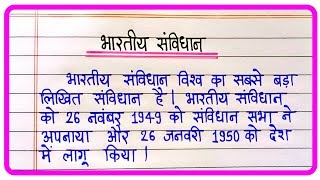 भारतीय संविधान
भारतीय संविधान विश्व का सबसे बड़ा
लिखित संविधान है। भारतीय संविधान
को 26 नवंबर 1949 को संविधान सभा ने
अपनाया और 26 जनवरी 1950 को देश
में लागू किया।